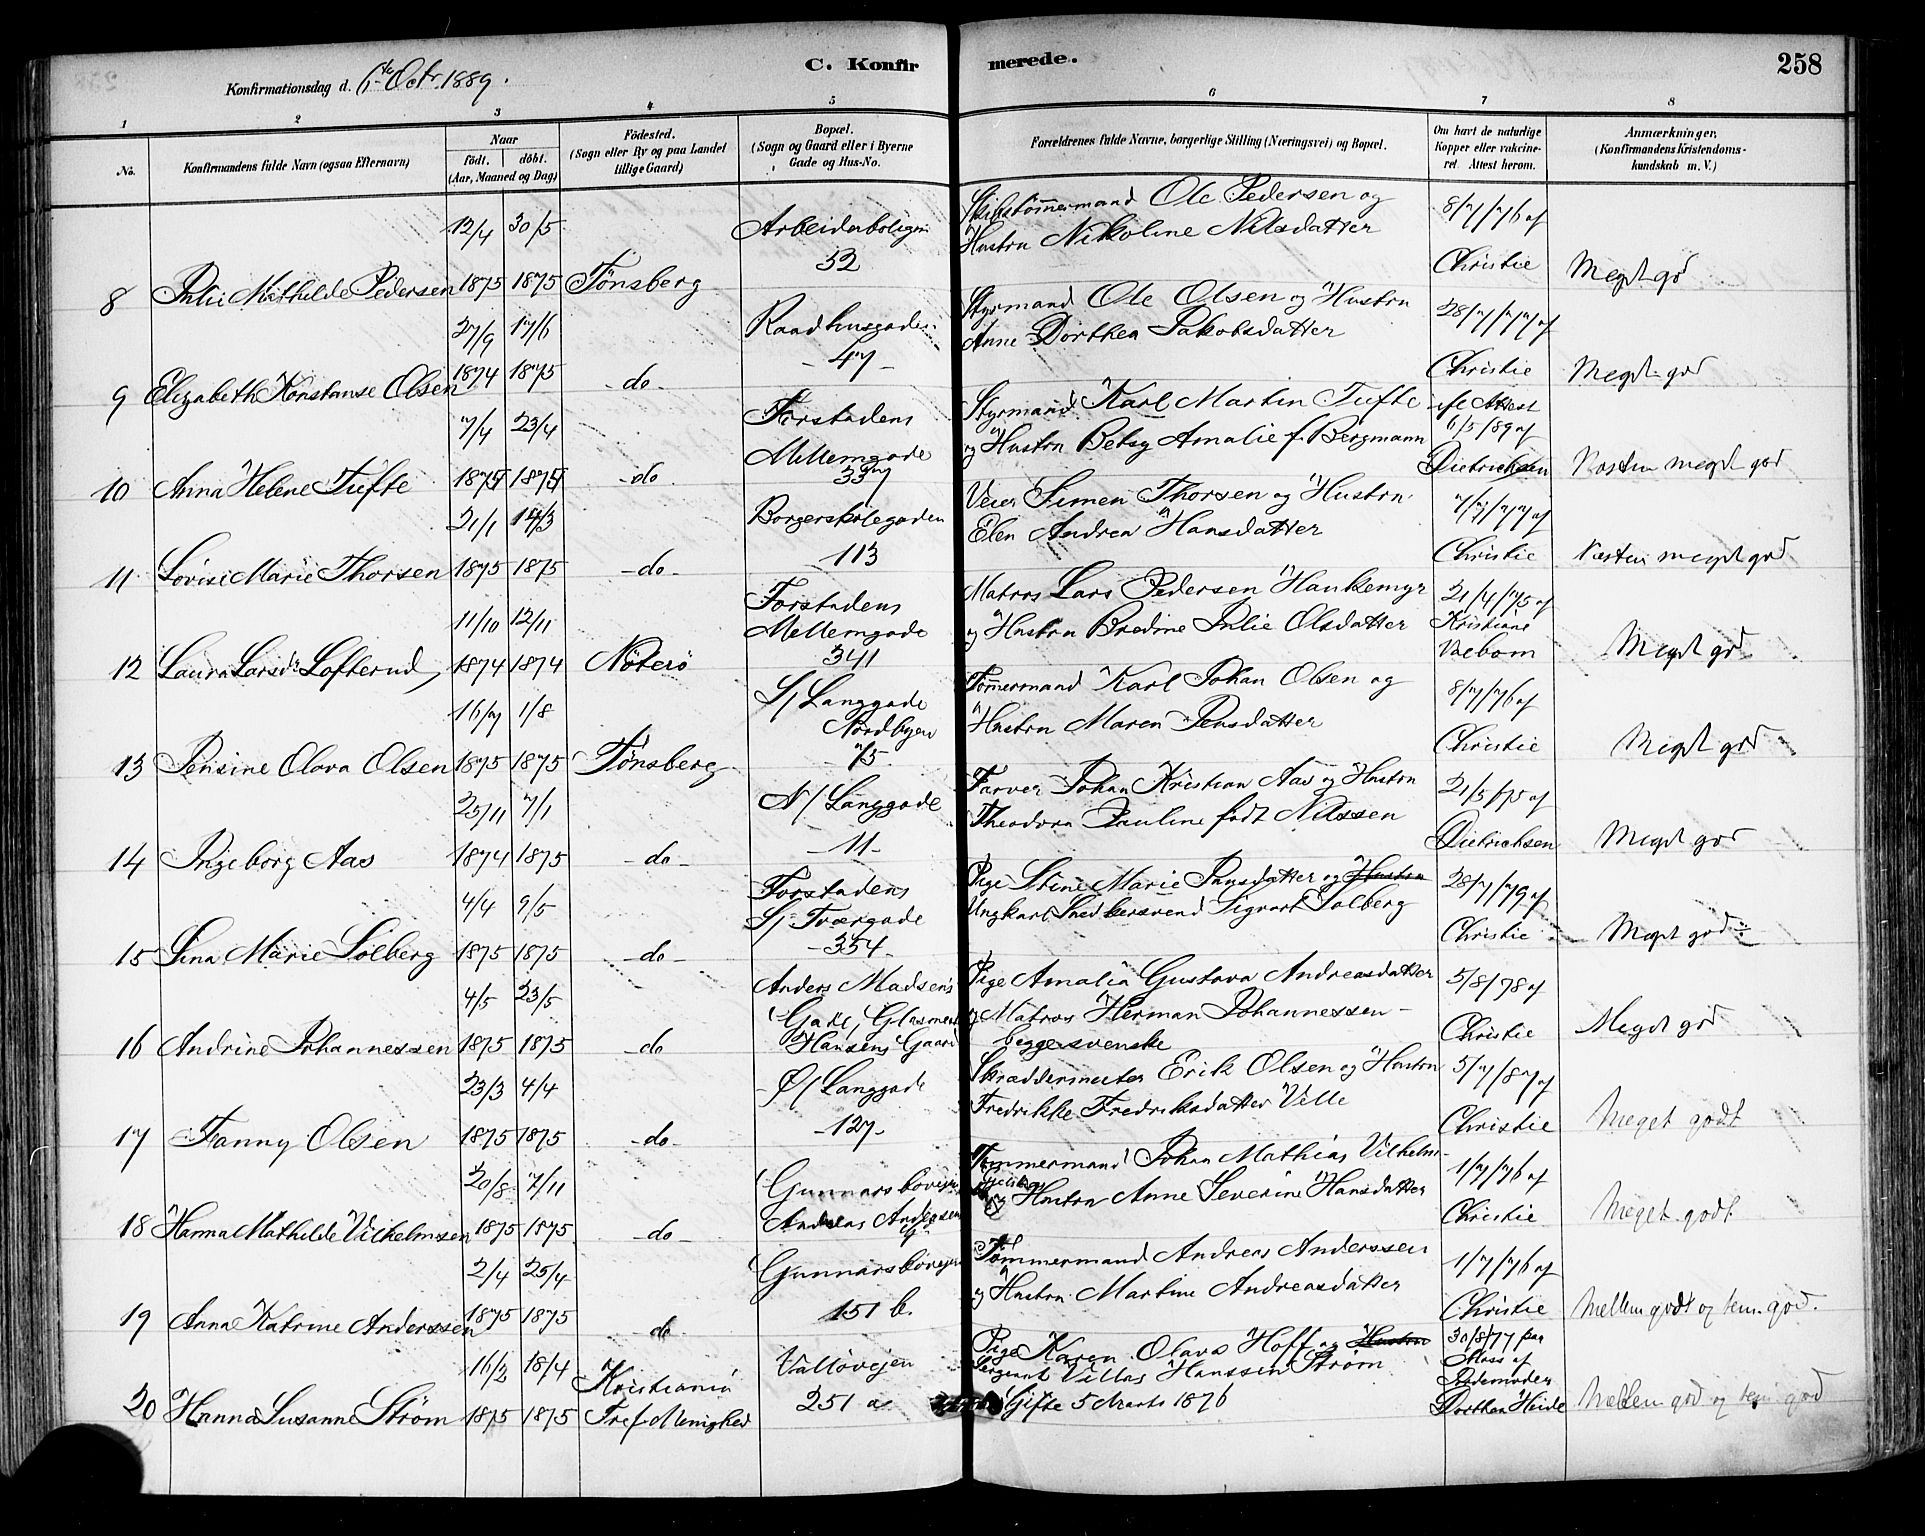 C. Konfirmerede.
258
Konfirmationsdag d. 6te Octr. 1889.
1 2 3 4 5 6 7 8
No.
Konfirmandens fulde Navn (ogsaa Efternavn)
Naar
født. døbt.
(Aar, Maaned og Dag)
Fødested.
(Sogn eller By og paa Landet
tillige Gaard)
Bopæl.
(Sogn og Gaard eller i Byerne
Gade og Hus-No.
Forældrenes fulde Navne, borgerlige Stilling (Næringsvei) og Bopæl.
Om havt de naturlige
Kopper eller vakcine-
ret. Attest herom.
Anmærkninger,
(Konfirmandens Kristendoms-
kundskab m. V.)
8 Julie Mathilde Pedersen
12/4 30/5
1875 1875
Tønsberg
Arbeiderboligen
32
Skibstømmermand Ole Pedersen og
Hustru Nikoline Nilsdatter
8/7/76 af
Christie
Meget god
9 Elizabeth Konstanse Olsen
27/9 17/6
1874 1875
-do-
Raadhusgaden
-47-
Styrmand Ole Olsen og Hustru
Anne Dorthea Jakobsdatter
28/7/77 af
Christie
Meget god
10 Anna Helene Tufte
7/4 23/4
1875 1875
-do-
Forstadens
Mellemgade
337
Styrmand Karl Martin Tufte
og Hustru Betsy Amalie f. Bergmann
ifl Attest
6/5/89 af
Dietrichsen
Næsten meget god
11 Lovise Marie Thorsen
21/1 14/3
1875 1875
-do-
Borgerskolegaden
-113
Veier Simen Thorsen og Hustru
Elen Andrea Hansdatter
7/7/77 af
Christie
Næsten meget god
12 Laura Larsdr. Lofterud
11/10 12/11
1874 1874
Nøterø
Forstadens
Mellemgade
341
Matros Lars Pedersen Haukemyr
og Hustru Bredine Julie Olsdatter
21/4/75 af
Kristiane
Meget god
13 Jensine Olava Olsen
16/7 1/8
1875 1875
Tønsberg
S/ Langgade
Nordbyen
75
Tømmermand Karl Johan Olsen og
Hustru Maren Jensdatter
8/7/76 af
Christie
Meget god
14 Ingeborg Aas
25/11 7/1
1874 1875
-do-
N/ Langgade
-11-
Farver Johan Kristian Aas og Hustru
Theodora Pauline født Nilssen
21/5/75 af
Dietrichsen
Meget god
15 Sina Marie Solberg
4/4 9/5
1875 1875
-do-
Forstadens
S/ Tværgade
-354-
Pige Stine Marie Jansdatter og Hustru
Ungkarl Snedkersvend Sigvart Solberg
28/7/79 af
Christie
Meget god
16 Andrine Johannessen
4/5 23/5
1875 1875
-do-
Anders Madsens
Gade, Glasmester
Hansens Gaard
Pige Amalia Gustava Andreasdatter
og Matros Herman Johannessen-
begge svenske
5/8/78 af
Christie
Meget god
17 Fanny Olsen
23/3 4/4
1875 1875
-do-
Ø/ Langgade
-127-
Skræddermester Erik Olsen og Hustru
Fredrikke Fredriksdatter Ville
5/7/87 af
Christie
Meget godt
18 Hanna Mathilde Vilhelmsen
20/8 7/11
1875 1875
-do-
Gunnarsbovejen
Andreas Andersen
Tømmermand Johan Mathias Vilhelm-
og Hustru Anne Severine Hansdatter
1/7/76 af
Christie
Meget godt
19 Anna Katrine Anderssen
2/4 25/4
1875 1875
do
Gunnarsbovejen
151 b.
Tømmermand Andreas Anderssen
og Hustru Martine Andreasdatter
1/7/76 af
Christie
Mellem godt og tem. god.
20 Hanna Susanne Strøm
16/2 18/4
1875 1875
Kristiania
Tref. Menighed
Valløvejen
251 a
Pige Karen Olava Hoff og Hustru
Sergeant Villas Hanssen Strøm
Gifte 5 Marts 1876
30/8/77 paa
Moss af
Jordemoder
Dorthea Heide
Mellem god og tem god